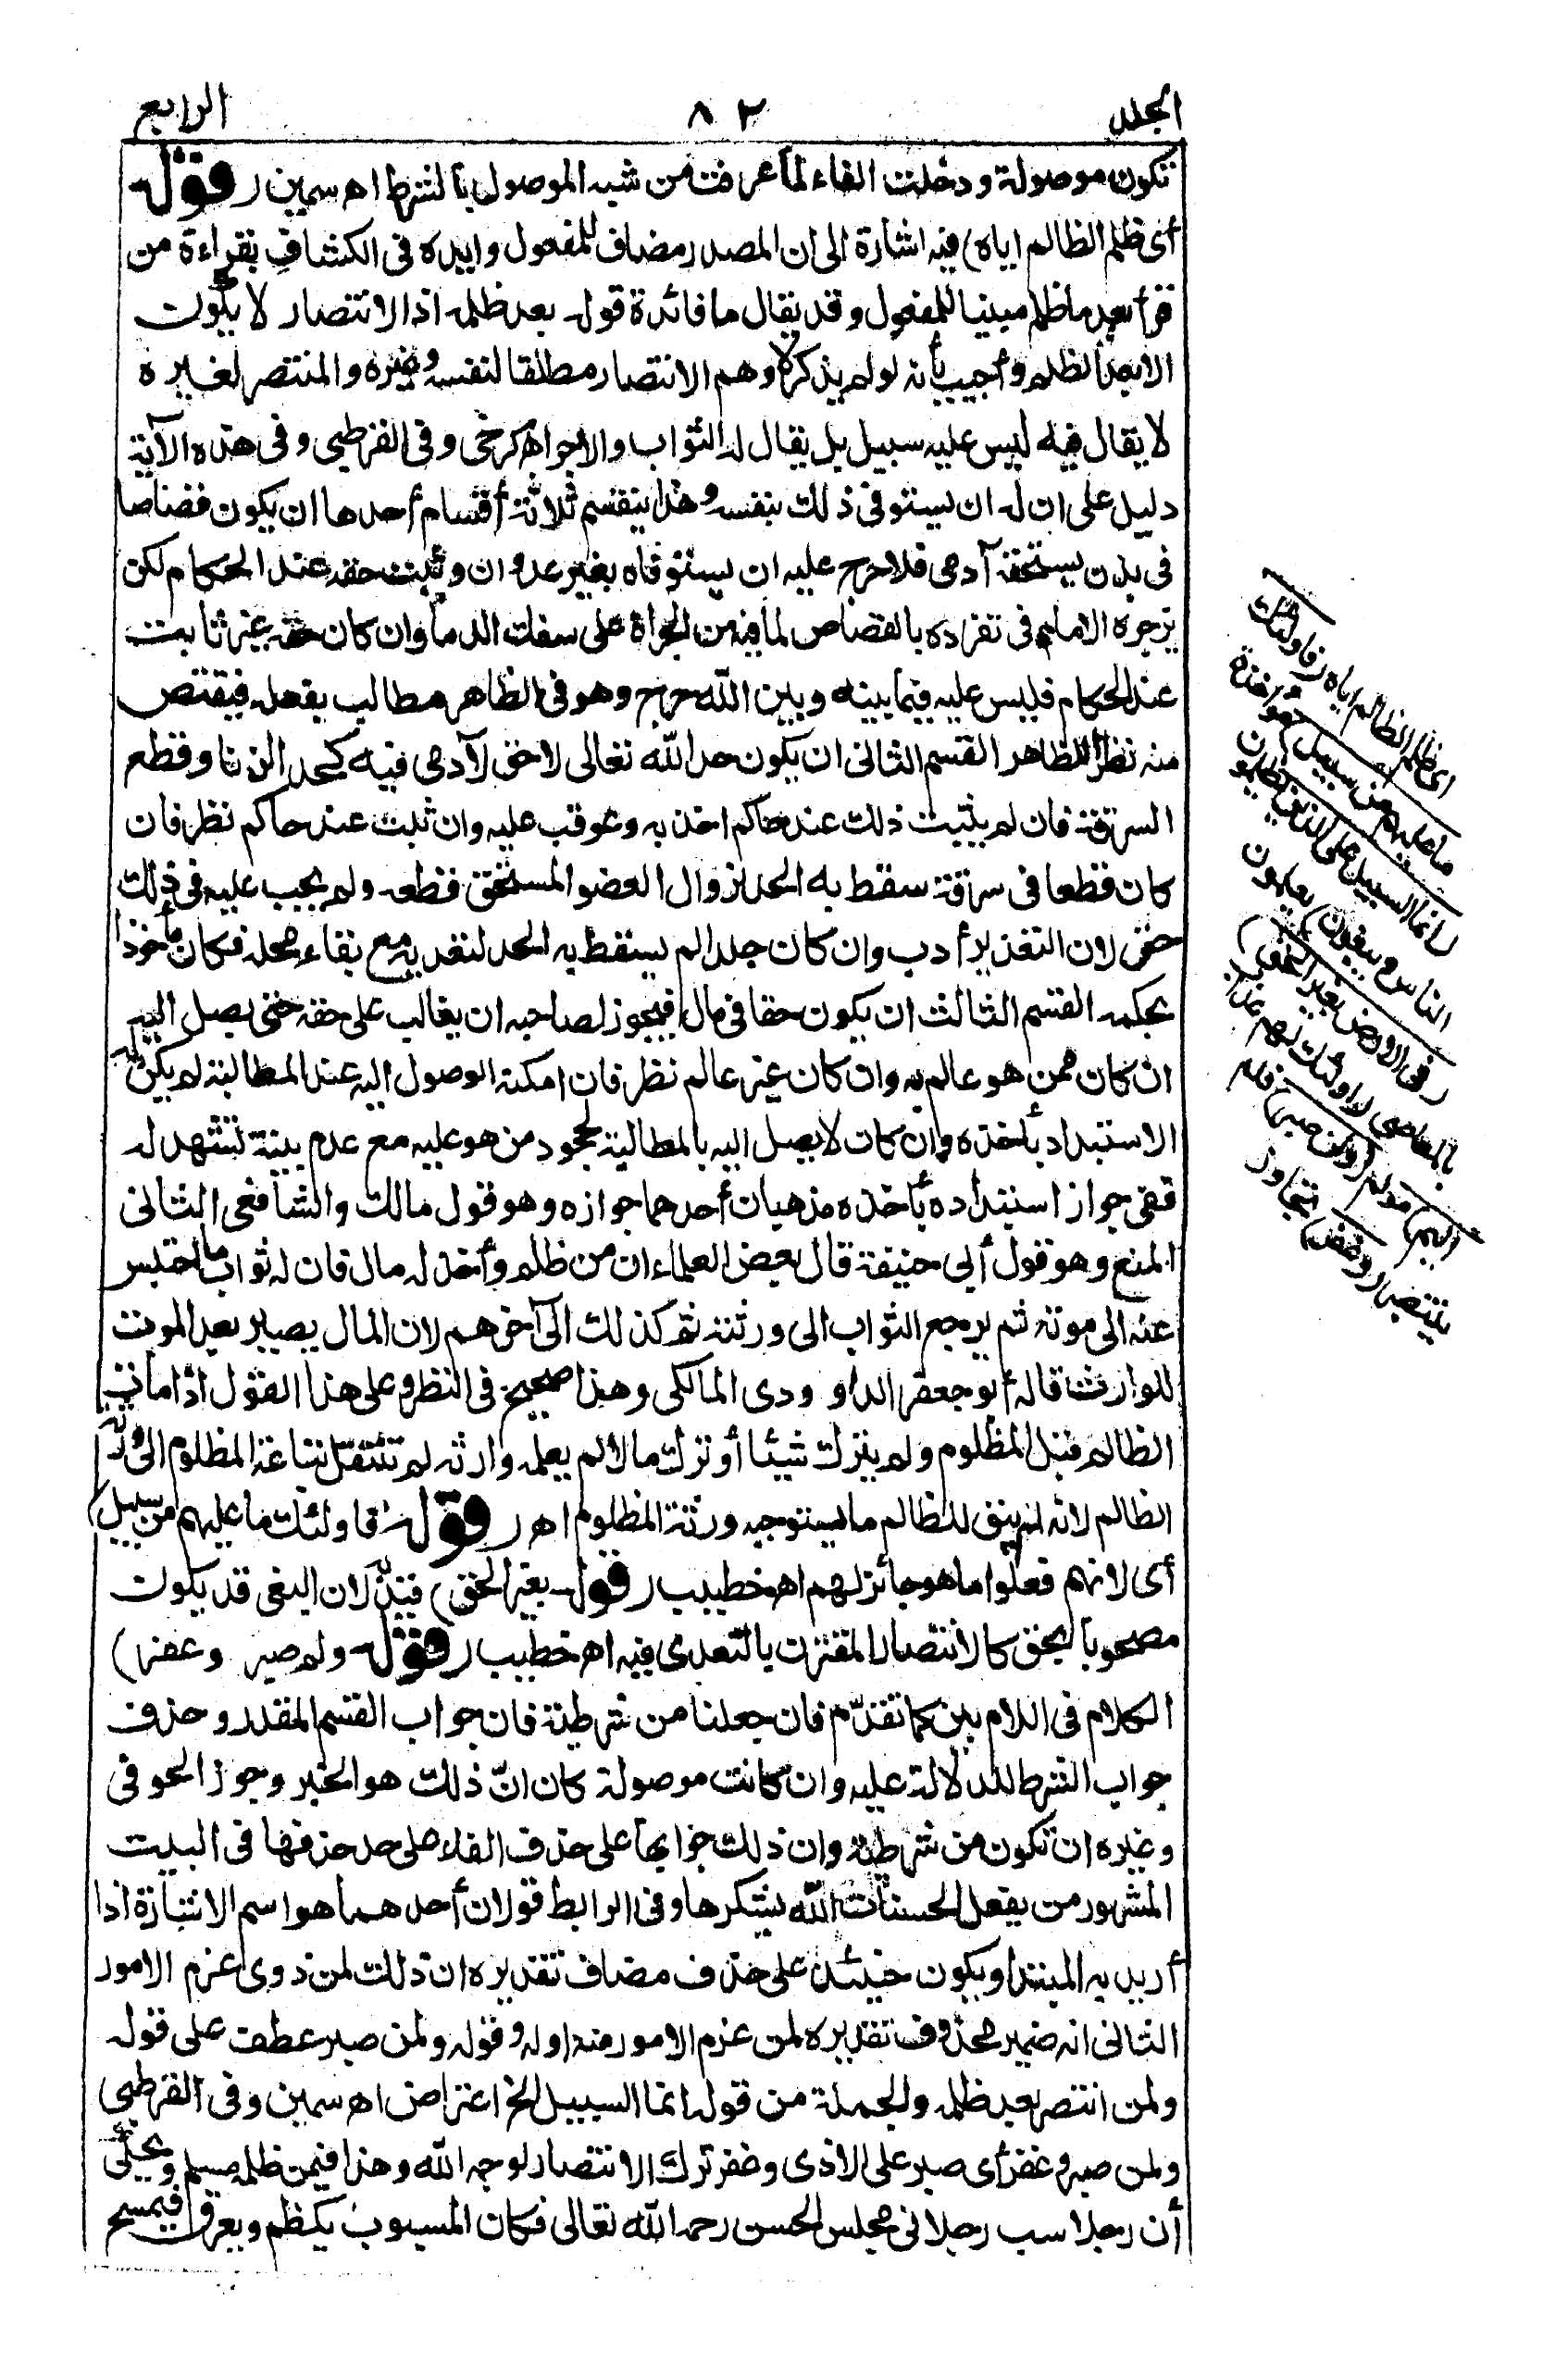 المجلد ٨٢ الرابع
تكون موصولة ودخلت الفاء لما عرفت من شبه الموصول بالشرط اه سمين (قوله
أى ظلم الظالم اياه) فيه اشارة الى ان المصدر مضاف للمفعول وايده فى الكشاف بقراءة من
قرأ بعد ما ظلم مبنيا للمفعول وقد يقال ما فائدة قوله بعد ظلمه اذ الانتصار لا يكون
الا بعد الظلم وأجيب بأنه لو لم يذكر لاوهم الانتصار مطلقا لنفسه وغيره والمنتصر لغيره
لا يقال فيه ليس عليه سبيل بل يقال له الثواب والاجر اه كرخى وفى القرطبى وفى هذه الآية
دليل على ان له ان يستوفى ذلك بنفسه وهذا ينقسم ثلاثة أقسام أحدها ان يكون قصاصا
فى بدن يستحقه آدمى فلا حرج عليه ان يستوفاه بغير عدوان وثبت حقه عند الحكام لكن
يزجره الامام فى تفرده بالقصاص لما فيه من الجراة على سفك الدماء وان كان حقه غير ثابت
عند الحكام فليس عليه فيما بينه وبين الله حرج وهو فى الظاهر مطالب بفعله فيقتص
منه نظرا للظاهر القسم الثانى ان يكون حد الله تعالى لا حق لآدمى فيه كحد الزنا وقطع
السرقة فان لم يثبت ذلك عند حاكم اخذ به وعوقب عليه وان ثبت عند حاكم نظر فان
كان قطعا فى سرقة سقط به الحد لزوال العضو المستحق قطعه ولم يجب عليه فى ذلك
حق لان التعزير أدب وان كان جلدا لم يسقط به الحد لتعديه مع بقاء محله فكان مأخوذا
بحكمه القسم الثالث ان يكون حقا فى مال فيجوز لصاحبه ان يغالب على حقه حتى يصل اليه
ان كان ممن هو عالم به وان كان غير عالم نظر فان امكنه الوصول اليه عند المطالبة لم يكن له
الاستبداد بأخذه وان كان لا يصل اليه بالمطالبة لجحود من هو عليه مع عدم بينة تشهد له
ففى جواز استبداده بأخذه مذهبان أحدهما جوازه وهو قول مالك والشافعى الثانى
المنع وهو قول أبى حنيفة قال بعض العلماء ان من ظلم وأخذ له مال فان له ثواب ما احتبس
عنه الى موته ثم يرجع الثواب الى ورثته ثم كذلك الى آخرهم لان المال يصير بعد الموت
للوارث قاله أبو جعفر الداوودى المالكى وهذا صحيح فى النظر وعلى هذا القول اذا مات
الظالم قبل المظلوم ولم يترك شيئا أو ترك مالا لم يعلمه وارثه لم تنتقل تباعة المظلوم الى ورثة
الظالم لانه لم يبق للظالم ما يستوجبه ورثة المظلوم اه (قوله فاولئك ما عليهم من سبيل)
أى لانهم فعلوا ما هو جائز لهم اه خطيب (قوله بغير الحق) قيد به لان البغى قد يكون
مصحوبا بالحق كالانتصار المقترن بالتعدى فيه اه خطيب (قوله ولمن صبر وغفر)
الكلام فى اللام بين كما تقدّم فان جعلنا من شرطية فان جواب القسم المقدر وحذف
جواب الشرط للدلالة عليه وان كانت موصولة كان انّ ذلك هو الخبر وجوز الحوفى
وغيره ان تكون من شرطية وان ذلك جوابها على حذف الفاء على حد حذفها فى البيت
المشهور من يفعل الحسنات الله يشكرها وفى الرابط قولان أحدهما هو اسم الاشارة اذا
أريد به المبتدا ويكون حينئذ على حذف مضاف تقديره ان ذلك لمن ذوى عزم الامور
الثانى انه ضمير محذوف تقديره لمن عزم الامور منه اوله وقوله ولمن صبر عطف على قوله
ولمن انتصر بعد ظلمه والجملة من قوله انما السبيل الخ اعتراض اه سمين وفى القرطبى
ولمن صبر وغفر أى صبر على الاذى وغفر ترك الانتصار لوجه الله وهذا فيمن ظلمه مسلم ويحكى
أن رجلا سب رجلا فى مجلس الحسن رحمه الله تعالى فكان المسبوب يكظم ويعرق فيمسح
اى ظلم الظالم اياه (فاولئك
ما عليهم من سبيل) مؤاخذة
(انما السبيل على الذين يظلمون
الناس ويبغون) يعملون
(فى الارض بغير الحق)
بالمعاصى (اولئك لهم عذاب
اليم) مؤلم (ولمن صبر) فلم
ينتصر (وغفر) تجاوز